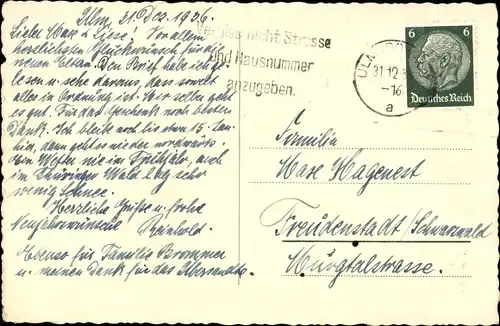 Ulm, 31. Dez. 1936.
Liebe Maxe u. Liese! Vor allem
herzlichsten Glückwunsch für die
neuen Eltern. Den Brief habe ich ge-
lesen u. sehe daraus, dass soweit
alles in Ordnung ist. Mir selber geht
es gut. Für das Geschenk noch besten
Dank. Ich bleibe noch bis etwa 15. Jan.
hier, dann geht es wieder nordwärts.
Das Wetter wie im Frühjahr, auch
im Thüringer Wald lag sehr
wenig Schnee.
Herzliche Grüsse u. frohe
Neujahrswünsche Reinhold.
Ebenso für Familie
u. meinen Dank für das Übersandte.
Vergiss nicht Strasse
und Hausnummer
anzugeben.
ULM
31.12.3
-16
a
6 6
Deutsches Reich
Familie
Maxe Hagenest
Freudenstadt/Schwarzwald
Murgtalstrasse.